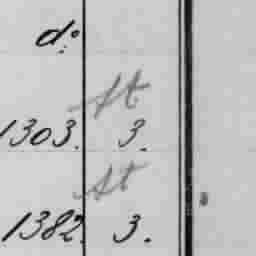 do:
St
1303. 3.
St
1382. 3.